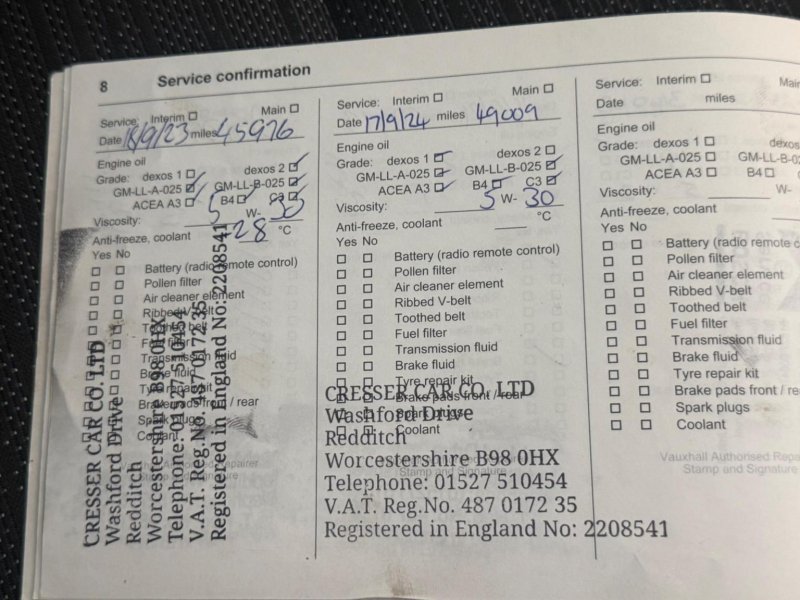 8 Service confirmation
Service: Interim ☐ Main ☐
Date 18/9/23 miles 45976
Engine oil
Grade: dexos 1 ☐ dexos 2 ☑
GM-LL-A-025 ☑ GM-LL-B-025 ☑
ACEA A3 ☐ B4 ☐ C3 ☑
Viscosity: 5 W- 30
Anti-freeze, coolant -28 °C
Yes No
☐ ☐ Battery (radio remote control)
☐ ☐ Pollen filter
☐ ☐ Air cleaner element
☐ ☐ Ribbed V-belt
☐ ☐ Toothed belt
☐ ☐ Fuel filter
☐ ☐ Transmission fluid
☐ ☐ Brake fluid
☐ ☐ Tyre repair kit
☐ ☐ Brake pads front / rear
☐ ☐ Spark plugs
☐ ☐ Coolant
CRESSER CAR CO. LTD
Washford Drive
Redditch
Worcestershire B98 0HX
Telephone: 01527 510454
V.A.T. Reg.No. 487 0172 35
Registered in England No: 2208541
Service: Interim ☐ Main ☐
Date 17/9/24 miles 49009
Engine oil
Grade: dexos 1 ☑ dexos 2 ☐
GM-LL-A-025 ☑ GM-LL-B-025 ☑
ACEA A3 ☑ B4 ☑ C3 ☑
Viscosity: 5 W- 30
Anti-freeze, coolant °C
Yes No
☐ ☐ Battery (radio remote control)
☐ ☐ Pollen filter
☐ ☐ Air cleaner element
☐ ☐ Ribbed V-belt
☐ ☐ Toothed belt
☐ ☐ Fuel filter
☐ ☐ Transmission fluid
☐ ☐ Brake fluid
☐ ☐ Tyre repair kit
☐ ☐ Brake pads front / rear
☐ ☐ Spark plugs
☐ ☐ Coolant
Stamp and Signature
CRESSER CAR CO. LTD
Washford Drive
Redditch
Worcestershire B98 0HX
Telephone: 01527 510454
V.A.T. Reg.No. 487 0172 35
Registered in England No: 2208541
Service: Interim ☐ Main
Date miles
Engine oil
Grade: dexos 1 ☐ dexos
GM-LL-A-025 ☐ GM-LL-B-0
ACEA A3 ☐ B4 ☐
Viscosity: W-
Anti-freeze, coolant
Yes No
☐ ☐ Battery (radio remote c
☐ ☐ Pollen filter
☐ ☐ Air cleaner element
☐ ☐ Ribbed V-belt
☐ ☐ Toothed belt
☐ ☐ Fuel filter
☐ ☐ Transmission fluid
☐ ☐ Brake fluid
☐ ☐ Tyre repair kit
☐ ☐ Brake pads front / re
☐ ☐ Spark plugs
☐ ☐ Coolant
Vauxhall Authorised Repa
Stamp and Signature